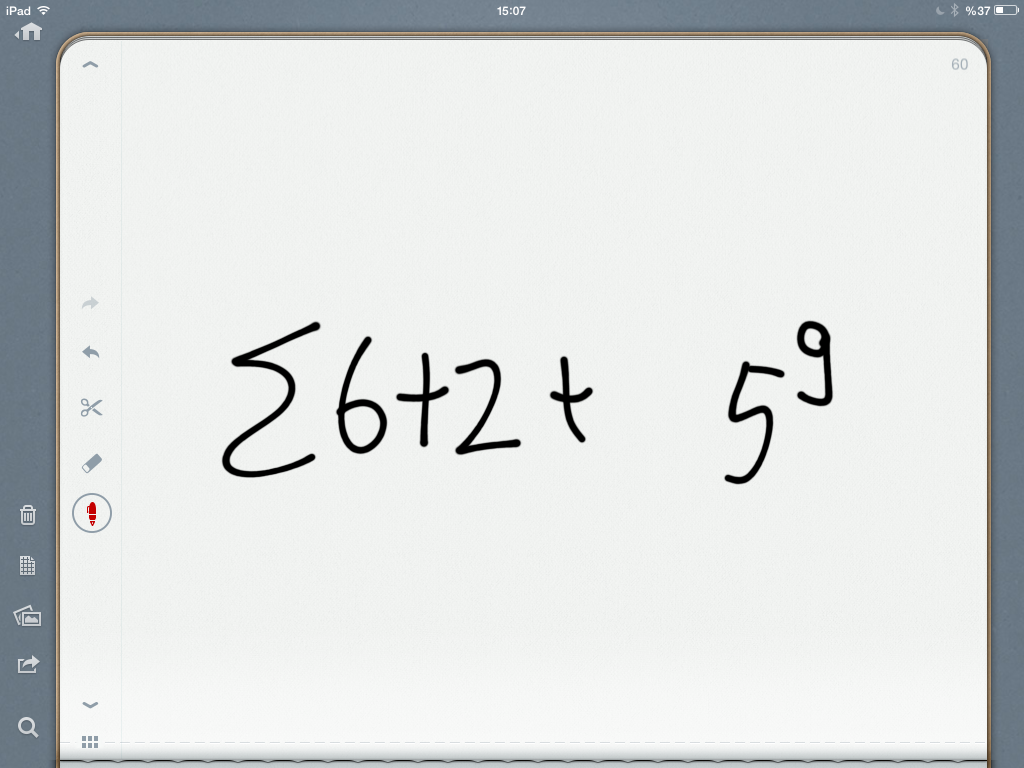 iPad 15:07 %37
60
∑6+2+ 5⁹